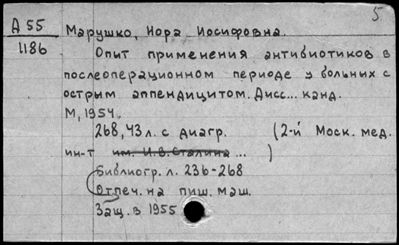 5
Д 55
1186
Марушко, Нора Иосифовна.
Опыт применения антибиотиков в
послеоперационном периоде у больных с
острым аппендицитом. Дисс... канд.
М, 1954.
268, 43 л. с диагр. (2-й Моск. мед.
ин-т им. И.В. Сталина ... )
Библиогр. л. 236-268
Отпеч. на пиш. маш.
Защ. в 1955